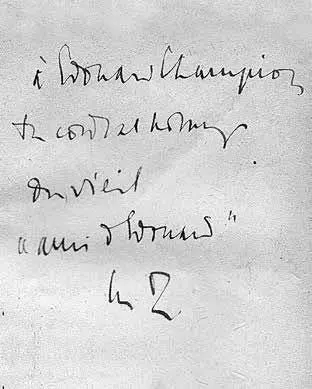 à Edouard Champion
cordial hommage
du vieil
"ami d'Edouard"